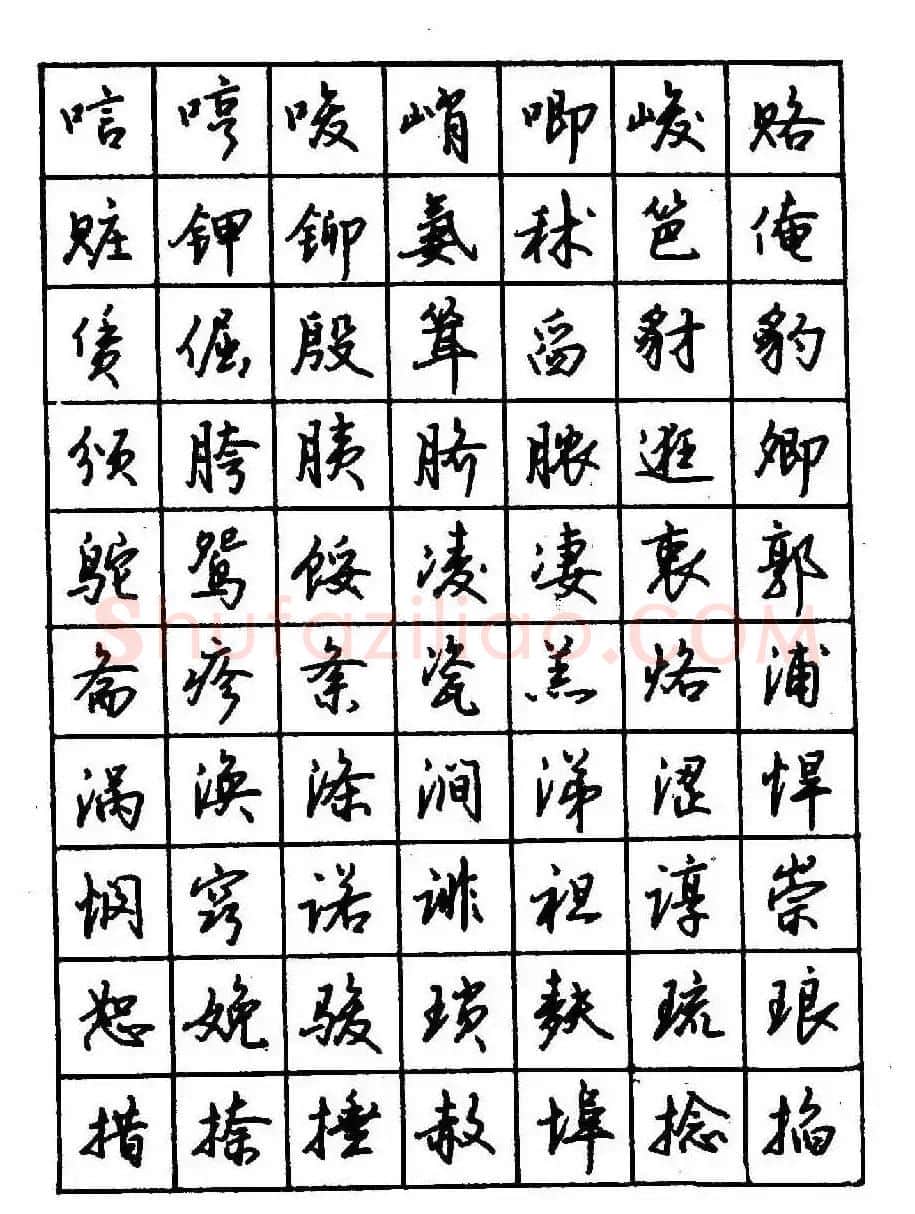 唁哼唆峭唧峻赂
赃钾铆氨秫笆俺
赁倔殷耸舀豺豹
颁胯胰脐脓逛卿
鸵鸳馁凌凄衷郭
斋疹紊瓷羔烙浦
涡涣涤涧涕涩悍
悯窍诺诽袒谆祟
恕娩骏琐麸琉琅
措捺捶赦埠捻掐
Shufaziliao.COM